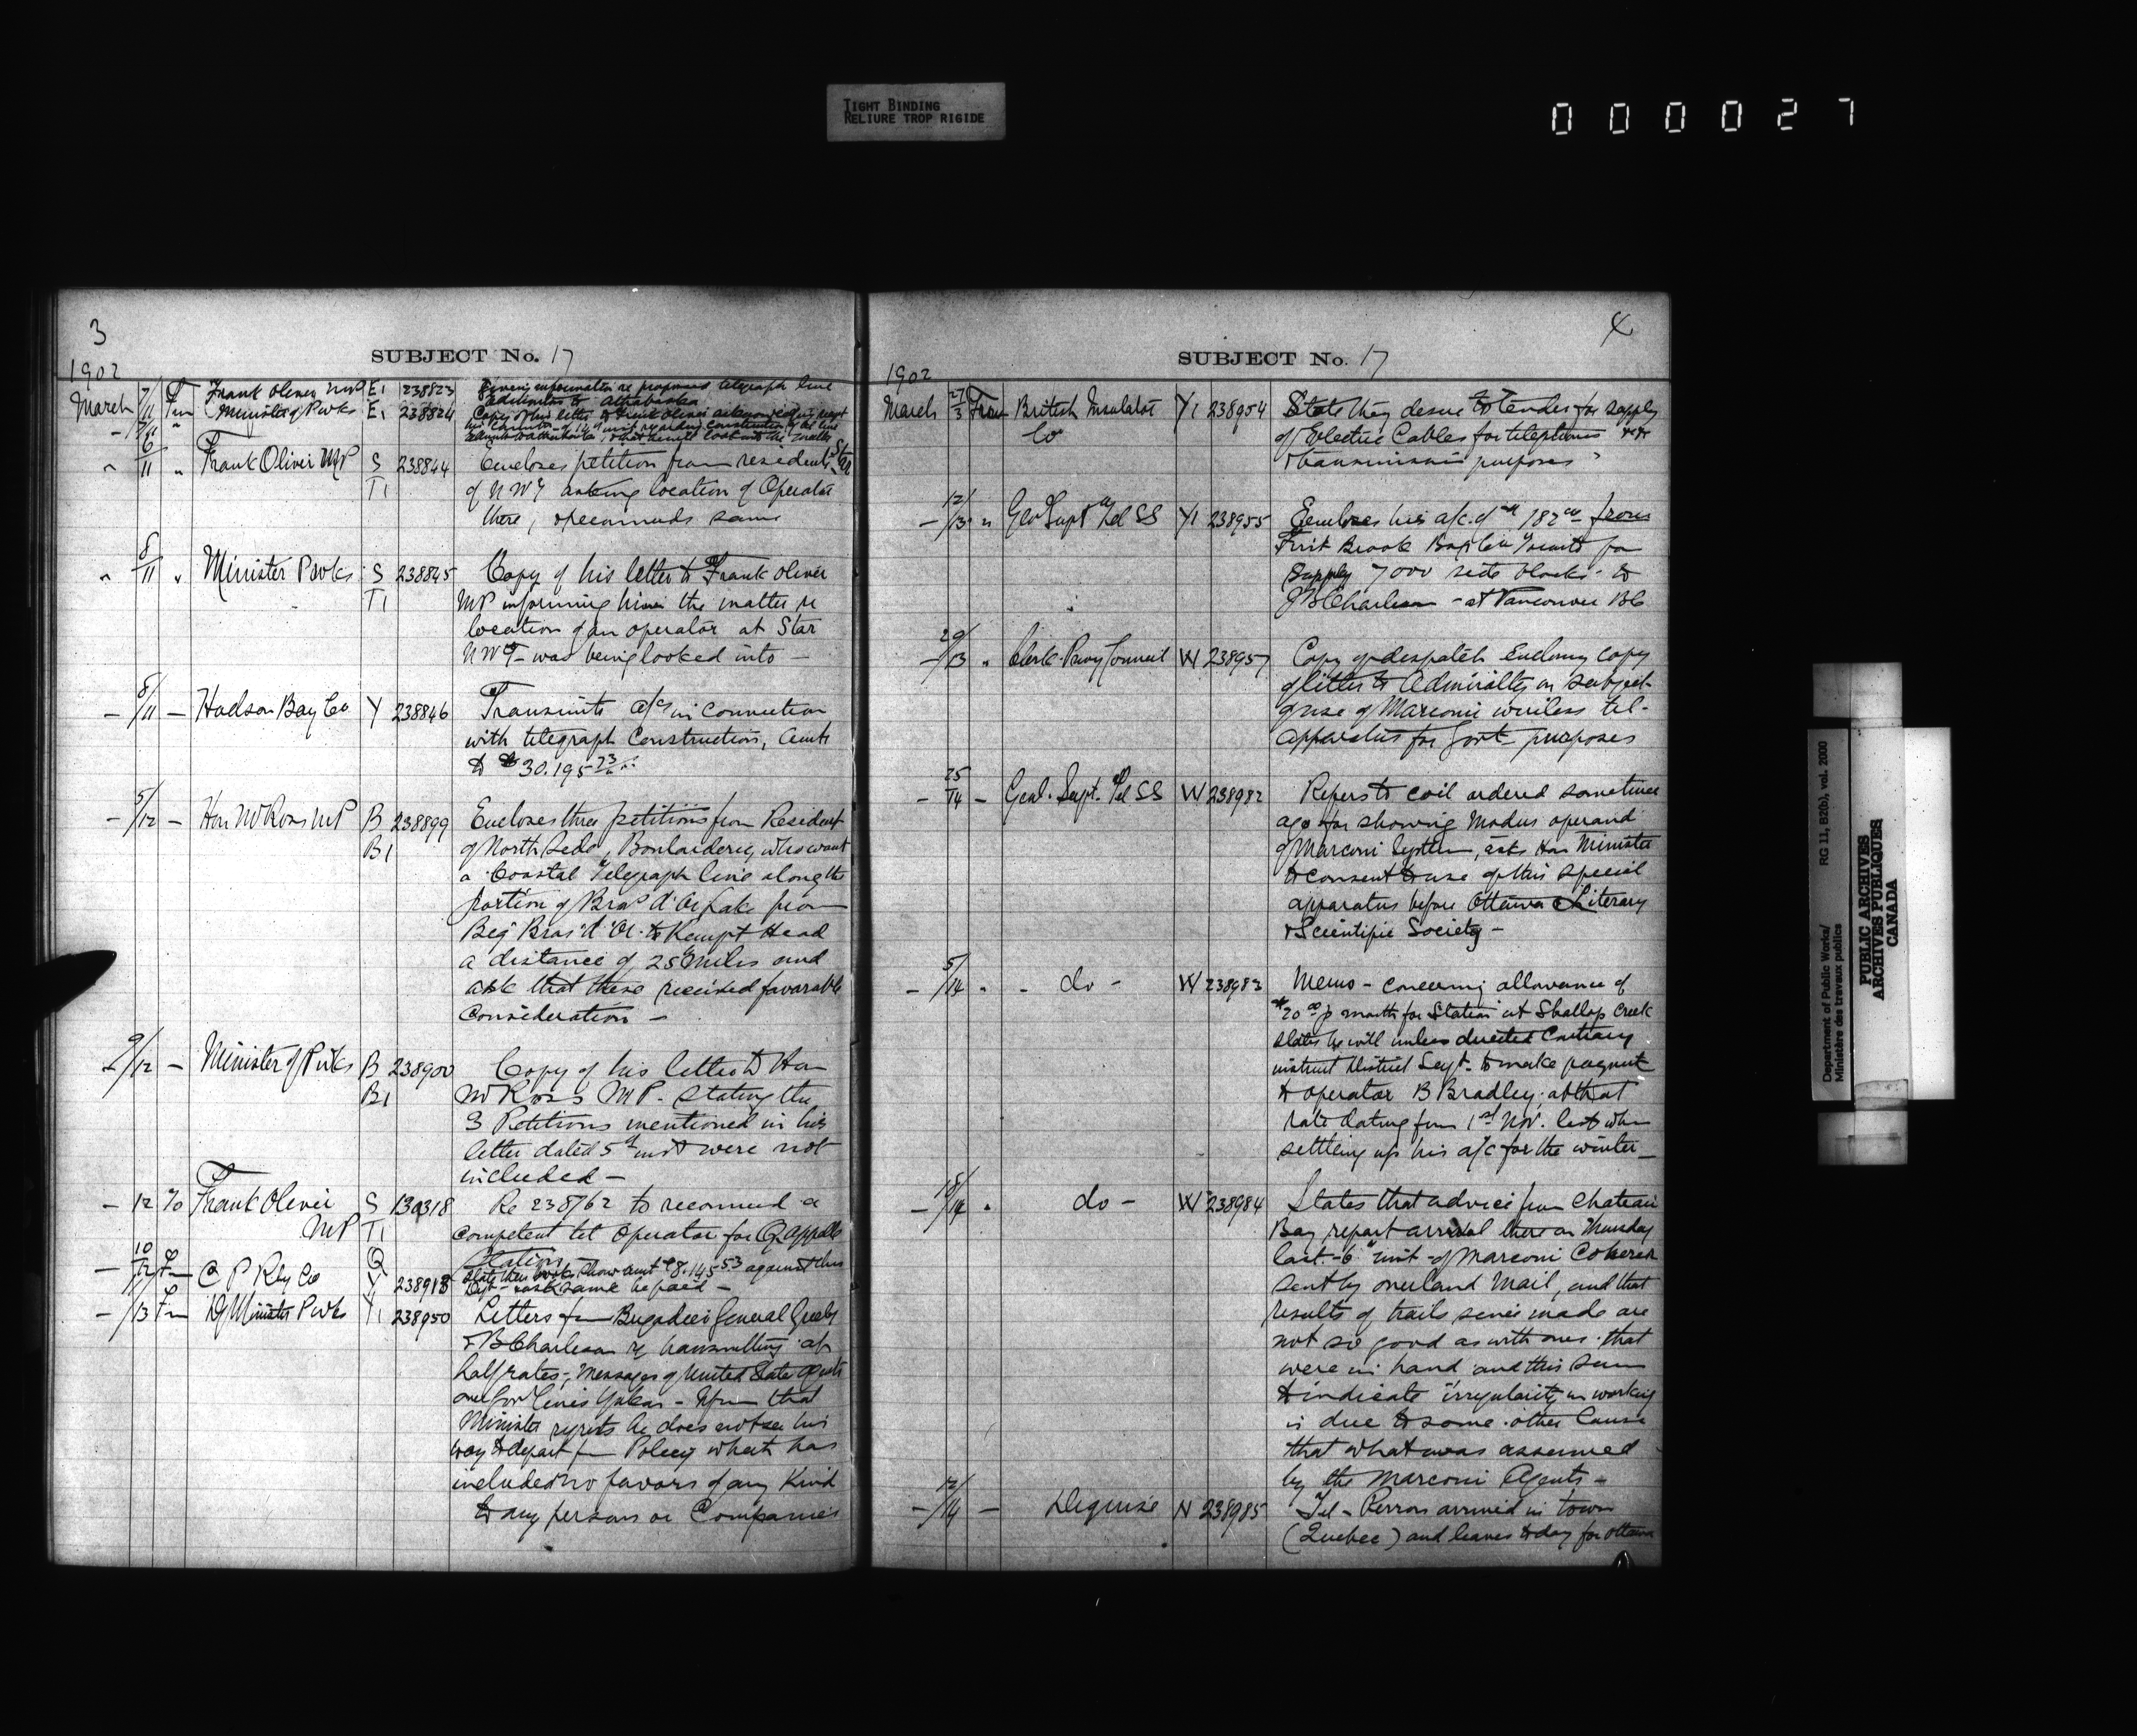 TIGHT BINDING
RELIURE TROP RIGIDE
0 0 0 0 2 7
3
SUBJECT No. 17
1902
March 7/11 Fm Frank Oliver MP E1 238823 Giving information re proposed telegraph line
Edmonton to Athabaska
Minister of P Wks E1 238824 Copy of his letter to Frank Oliver acknowledging receipt
6/11 " Frank Oliver MP S 238844 Encloses petition from residents Star
T1 of NWT asking location of Operator
there, & recommends same
" 8/11 " Minister P Wks S 238845 Copy of his letter to Frank Oliver
T1 MP informing him the matter re
location of an operator at Star
NWT - was being looked into -
- 8/11 - Hudson Bay Co Y 238846 Transmits a/cs in connection
with telegraph Construction, amts
to $30.195 23
- 5/12 - Hon W Ross MP B 238899 Encloses three petitions from Resident
B1 of North Side, Boularderie, who want
a Coastal Telegraph line along the
portion of Bras d'Or Lake from
Big Bras d'Or to Kempt Head
a distance of 25 miles and
ask that these received favorable
Consideration -
- 9/12 - Minister of P Wks B 238900 Copy of his letter to Hon
B1 W Ross MP. Stating the
3 Petitions mentioned in his
letter dated 5th inst were not
included -
- 12 To Frank Oliver S 130318 Re 238762 to recommend a
MP T1 competent tel operator for Qappelle
Q Station
- 10/12 Fm C P Rly Co Y 238918 State their books show amt $8.145 53 against this
Dept - & ask same be paid -
- 11/13 Fm D Minister P Wks Y1 238950 Letters fm Brigadier General Greely
& JBCharleson re transmitting at
half rates, messages of United State
over Govt lines Yukon - that
Minister regrets he does not see his
way to depart fm Policy which has
included no favors of any Kind
to any persons or Companies
4
SUBJECT No. 17
1902
March 27/3 From British Insulated Y1 238954 State they desire to Tender for supply
Co of Electric Cables for telephones
& transmission purposes
- 12/13 " Gen Supt Tel SS Y1 238955 Encloses his a/c of 182 00 from
First Brook Box Co Toronto for
Supply 7000 side blocks to
JBCharleson - at Vancouver BC
- 20/13 " Clerk Privy Council W 238957 Copy of despatch Enclosing copy
of letter to Admiralty on subject
of use of Marconi wireless tel-
apparatus for Govt purposes
- 25/14 - Genl. Supt. Tel SS W 238982 Refers to coil ordered sometime
ago for showing Modus operandi
of Marconi System, asks Hon Minister
to consent to use of this special
apparatus before Ottawa Literary
& Scientific Society -
- 5/14 " - do - W 238983 Memo - concerning allowance of
$20 00 p month for Station at Shallop Creek
states he will unless directed Contrary
instruct District Supt. to make payment
to operator B Bradley at that
rate dating from 1st Nov. last when
settling up his a/c for the winter -
- 18/14 " do - W 238984 States that advice from Chateau
Bay report arrival there on Thursday
last - 6th inst - of Marconi Coherer
sent by overland Mail, and that
results of trails since made are
not so good as with ones that
were in hand and this seem
to indicate irregularity in working
is due to some other Cause
that what was assumed
by the Marconi Agents -
- 12/14 - Deguise N 238985 Tel - Perron arrived in town
(Quebec) and leaves today for Ottawa
Department of Public Works/ RG 11, B2(b), vol. 2000
Ministère des travaux publics
PUBLIC ARCHIVES
ARCHIVES PUBLIQUES
CANADA